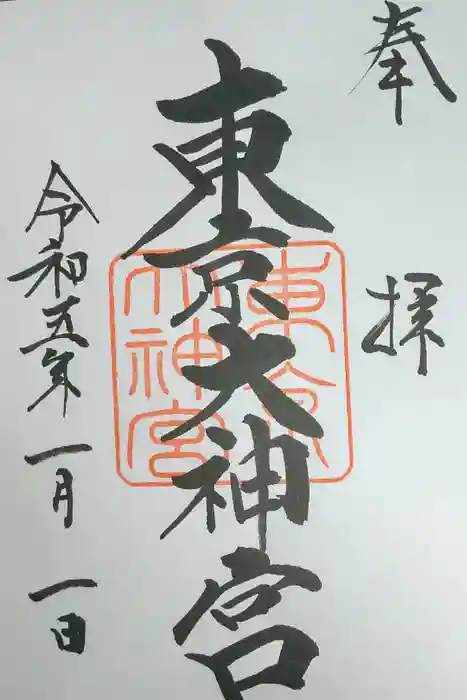 奉拝
東京大神宮
東京大神宮
令和五年一月一日